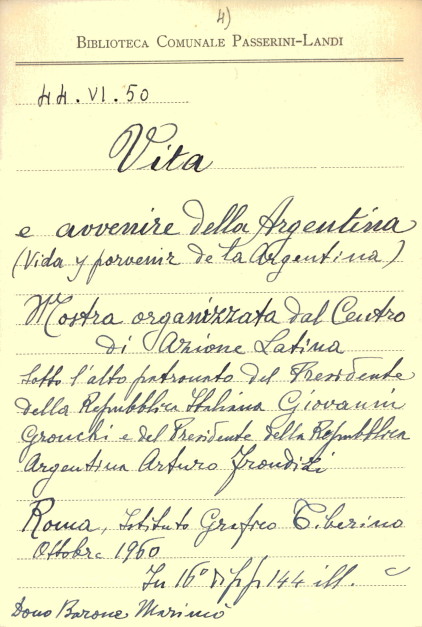 4)
BIBLIOTECA COMUNALE PASSERINI-LANDI
44.VI.50
Vita
e avvenire della Argentina
(Vida y porvenir de la Argentina)
Mostra organizzata dal Centro
di Azione Latina
sotto l'alto patronato del Presidente
della Repubblica Italiana Giovanni
Gronchi e del Presidente della Repubblica
Argentina Arturo Frondizi
Roma, Istituto Grafico Tiberino
Ottobre 1960
In 16° di pp 144 ill.
Dono Barone Marimò